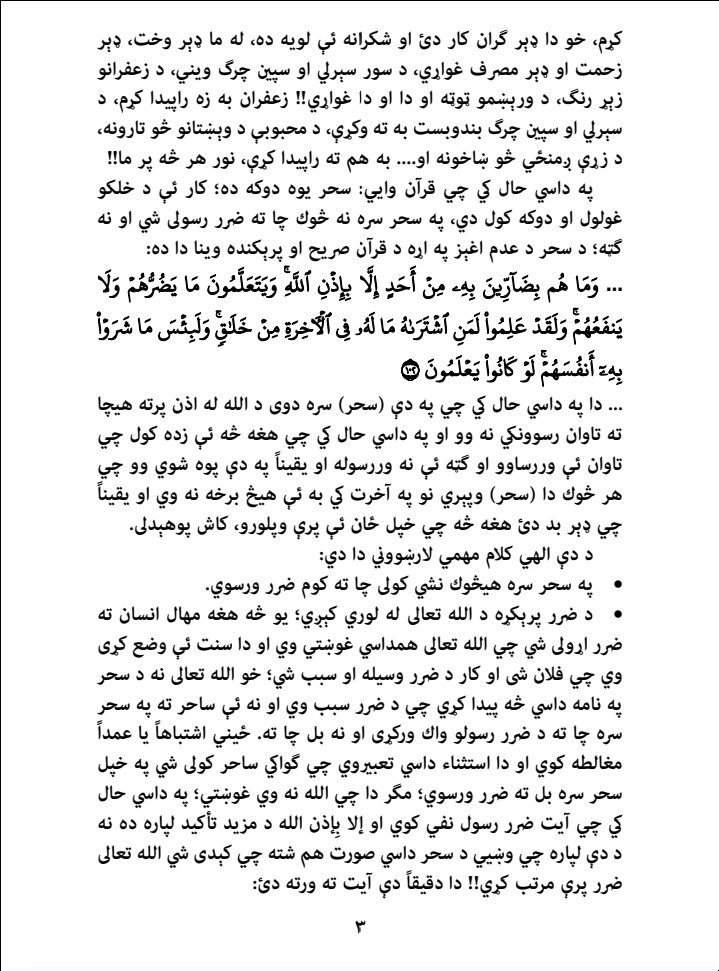 کړم، خو دا ډېر ګران کار دئ او شکرانه ئې لویه ده، له ما ډېر وخت، ډېر
زحمت او ډېر مصرف غواړي، د سور سېرلي او سپین چرګ ویني، د زعفرانو
زېړ رنګ، د ورېښمو ټوټه او دا او دا غواړي!! زعفران به زه راپیدا کړم، د
سېرلي او سپین چرګ بندوبست به ته وکړې، د محبوبې د وېښتانو څو تارونه،
د زړې ږمنځي څو ښاخونه او.... به هم ته راپیدا کړې، نور هر څه پر ما!!
په داسي حال کي چي قرآن وایي: سحر یوه دوکه ده؛ کار ئې د خلکو
غولول او دوکه کول دي، په سحر سره نه څوك چا ته ضرر رسولی شي او نه
ګټه؛ د سحر د عدم اغېز په اړه د قرآن صریح او پرېکنده وینا دا ده:
... وَمَا هُم بِضَآرِّينَ بِهِۦ مِنْ أَحَدٍ إِلَّا بِإِذْنِ ٱللَّهِۚ وَيَتَعَلَّمُونَ مَا يَضُرُّهُمْ وَلَا
يَنفَعُهُمْۚ وَلَقَدْ عَلِمُوا۟ لَمَنِ ٱشْتَرَىٰهُ مَا لَهُۥ فِى ٱلْءَاخِرَةِ مِنْ خَلَـٰقٍۚ وَلَبِئْسَ مَا شَرَوْا۟
بِهِۦٓ أَنفُسَهُمْۚ لَوْ كَانُوا۟ يَعْلَمُونَ ﴿١٠٢﴾
... دا په داسي حال کي چي په دې (سحر) سره دوی د الله له اذن پرته هیچا
ته تاوان رسوونکي نه وو او په داسي حال کي چي هغه څه ئې زده کول چي
تاوان ئې وررساوو او ګټه ئې نه وررسوله او یقیناً په دې پوه شوي وو چي
هر څوك دا (سحر) وپېري نو په آخرت کي به ئې هیڅ برخه نه وي او یقیناً
چي ډېر بد دئ هغه څه چي خپل ځان ئې پرې وپلورو، کاش پوهېدلی.
د دې الهي کلام مهمي لارښووني دا دي:
• په سحر سره هیڅوك نشي کولی چا ته کوم ضرر ورسوي.
• د ضرر پرېکړه د الله تعالی له لوري کېږي؛ یو څه هغه مهال انسان ته
ضرر اړولی شي چي الله تعالی همداسي غوښتي وي او دا سنت ئې وضع کړی
وي چي فلان شی او کار د ضرر وسیله او سبب شي؛ خو الله تعالی نه د سحر
په نامه داسي څه پیدا کړي چي د ضرر سبب وي او نه ئې ساحر ته په سحر
سره چا ته د ضرر رسولو واك ورکړی او نه بل چا ته. ځیني اشتباهاً یا عمداً
مغالطه کوي او دا استثناء داسي تعبیروي چي ګواکي ساحر کولی شي په خپل
سحر سره بل ته ضرر ورسوي؛ مګر دا چي الله نه وي غوښتي؛ په داسي حال
کي چي آیت ضرر رسول نفي کوي او إلا بِإذن الله د مزید تأکید لپاره ده نه
د دې لپاره چي وښیي د سحر داسي صورت هم شته چي کېدی شي الله تعالی
ضرر پرې مرتب کړي!! دا دقیقاً دې آیت ته ورته دئ:
٣